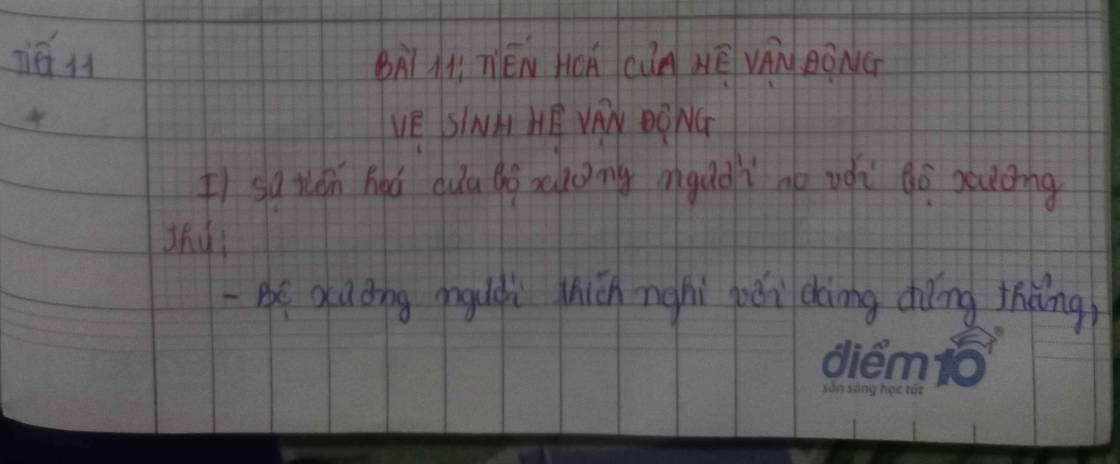 Tiết 11
BÀI 11: TIẾN HOÁ CỦA HỆ VẬN ĐỘNG
VỆ SINH HỆ VẬN ĐỘNG
I) Sự tiến hoá của bộ xương người so với bộ xương
thú:
- Bộ xương người thích nghi với dáng đứng thẳng,
điểm10
sẵn sàng học tốt